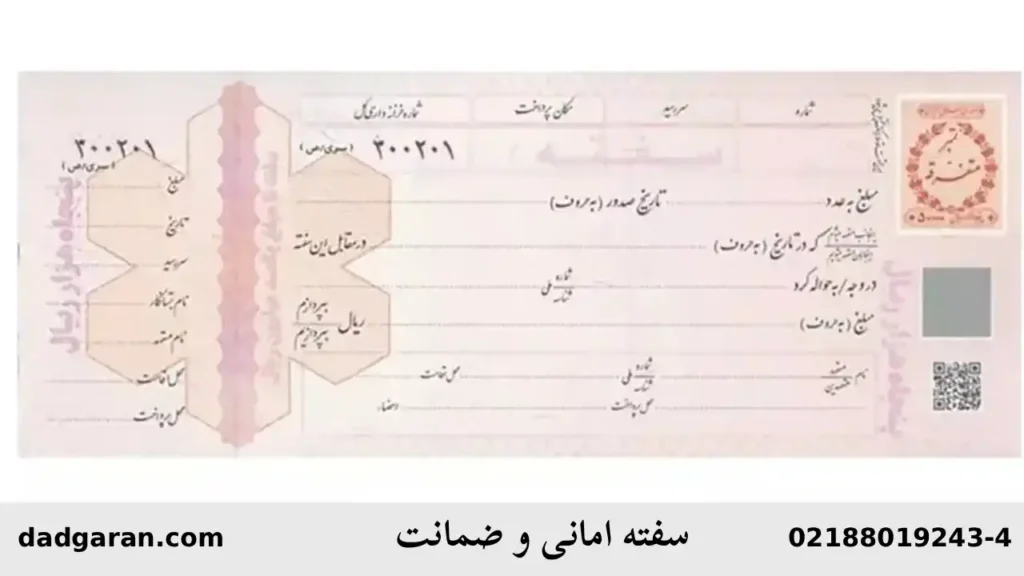 شماره
سررسید
مکان پرداخت
شماره خزانه داری کل
۳۰۰۲۰۱ (سری/ص)
۳۰۰۲۰۱
(سری/ص)
سفته
تمبر
متفرقه
مبلغ به عدد
تاریخ صدور (به حروف)
که در تاریخ (به حروف)
در مقابل این سفته
در وجه / به حواله کرد
شماره
شناسه
ملی
مبلغ (به حروف)
ریال
بپردازم
بپردازیم
نام
متعهد
متعهدین
شماره
شناسه
ملی
محل اقامت
محل پرداخت
امضاء
مبلغ
تاریخ
سررسید
نام بستانکار
نام متعهد
محل اقامت
محل پرداخت
پنجاه هزار ریال
پنجاه هزار ریال
dadgaran.com
سفته امانی و ضمانت
02188019243-4